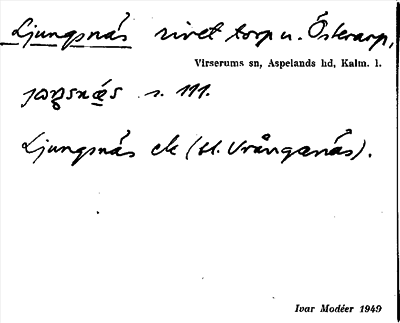 Ljungsnäs rivet torp u. Österarp,
Virserums sn, Aspelands hd, Kalm. l.
s. 111.
Ljungsnäs ek (st. Vrånganäs).
Ivar Modéer 1949